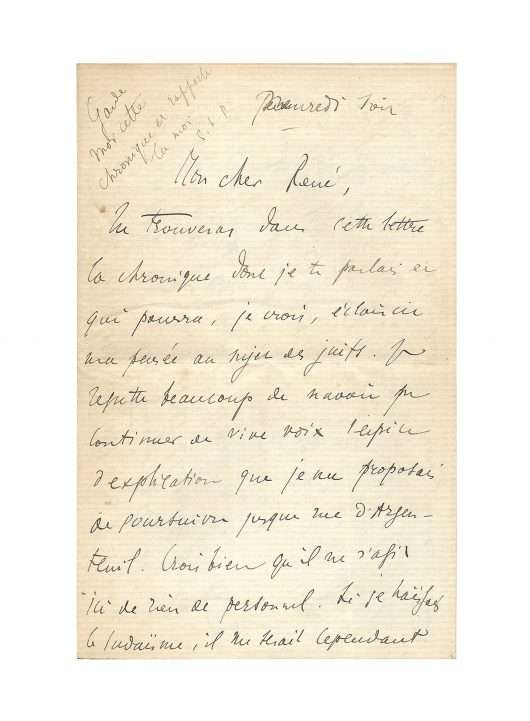 Garde
moi cette
chronique et rapporte
la moi
S.t.p.
soir
Mon cher René,
Tu trouveras dans cette lettre
la chronique dont je te parlais et
qui pourra, je crois, éclaircir
ma pensée au sujet des juifs. Je
regrette beaucoup de n'avoir pu
continuer de vive voix
d'explication que je me proposais
de poursuivre jusque rue d'Argen-
teuil. Crois bien qu'il ne s'agit
ici de rien de personnel. Si je haïssais
le Judaïsme, il me serait cependant